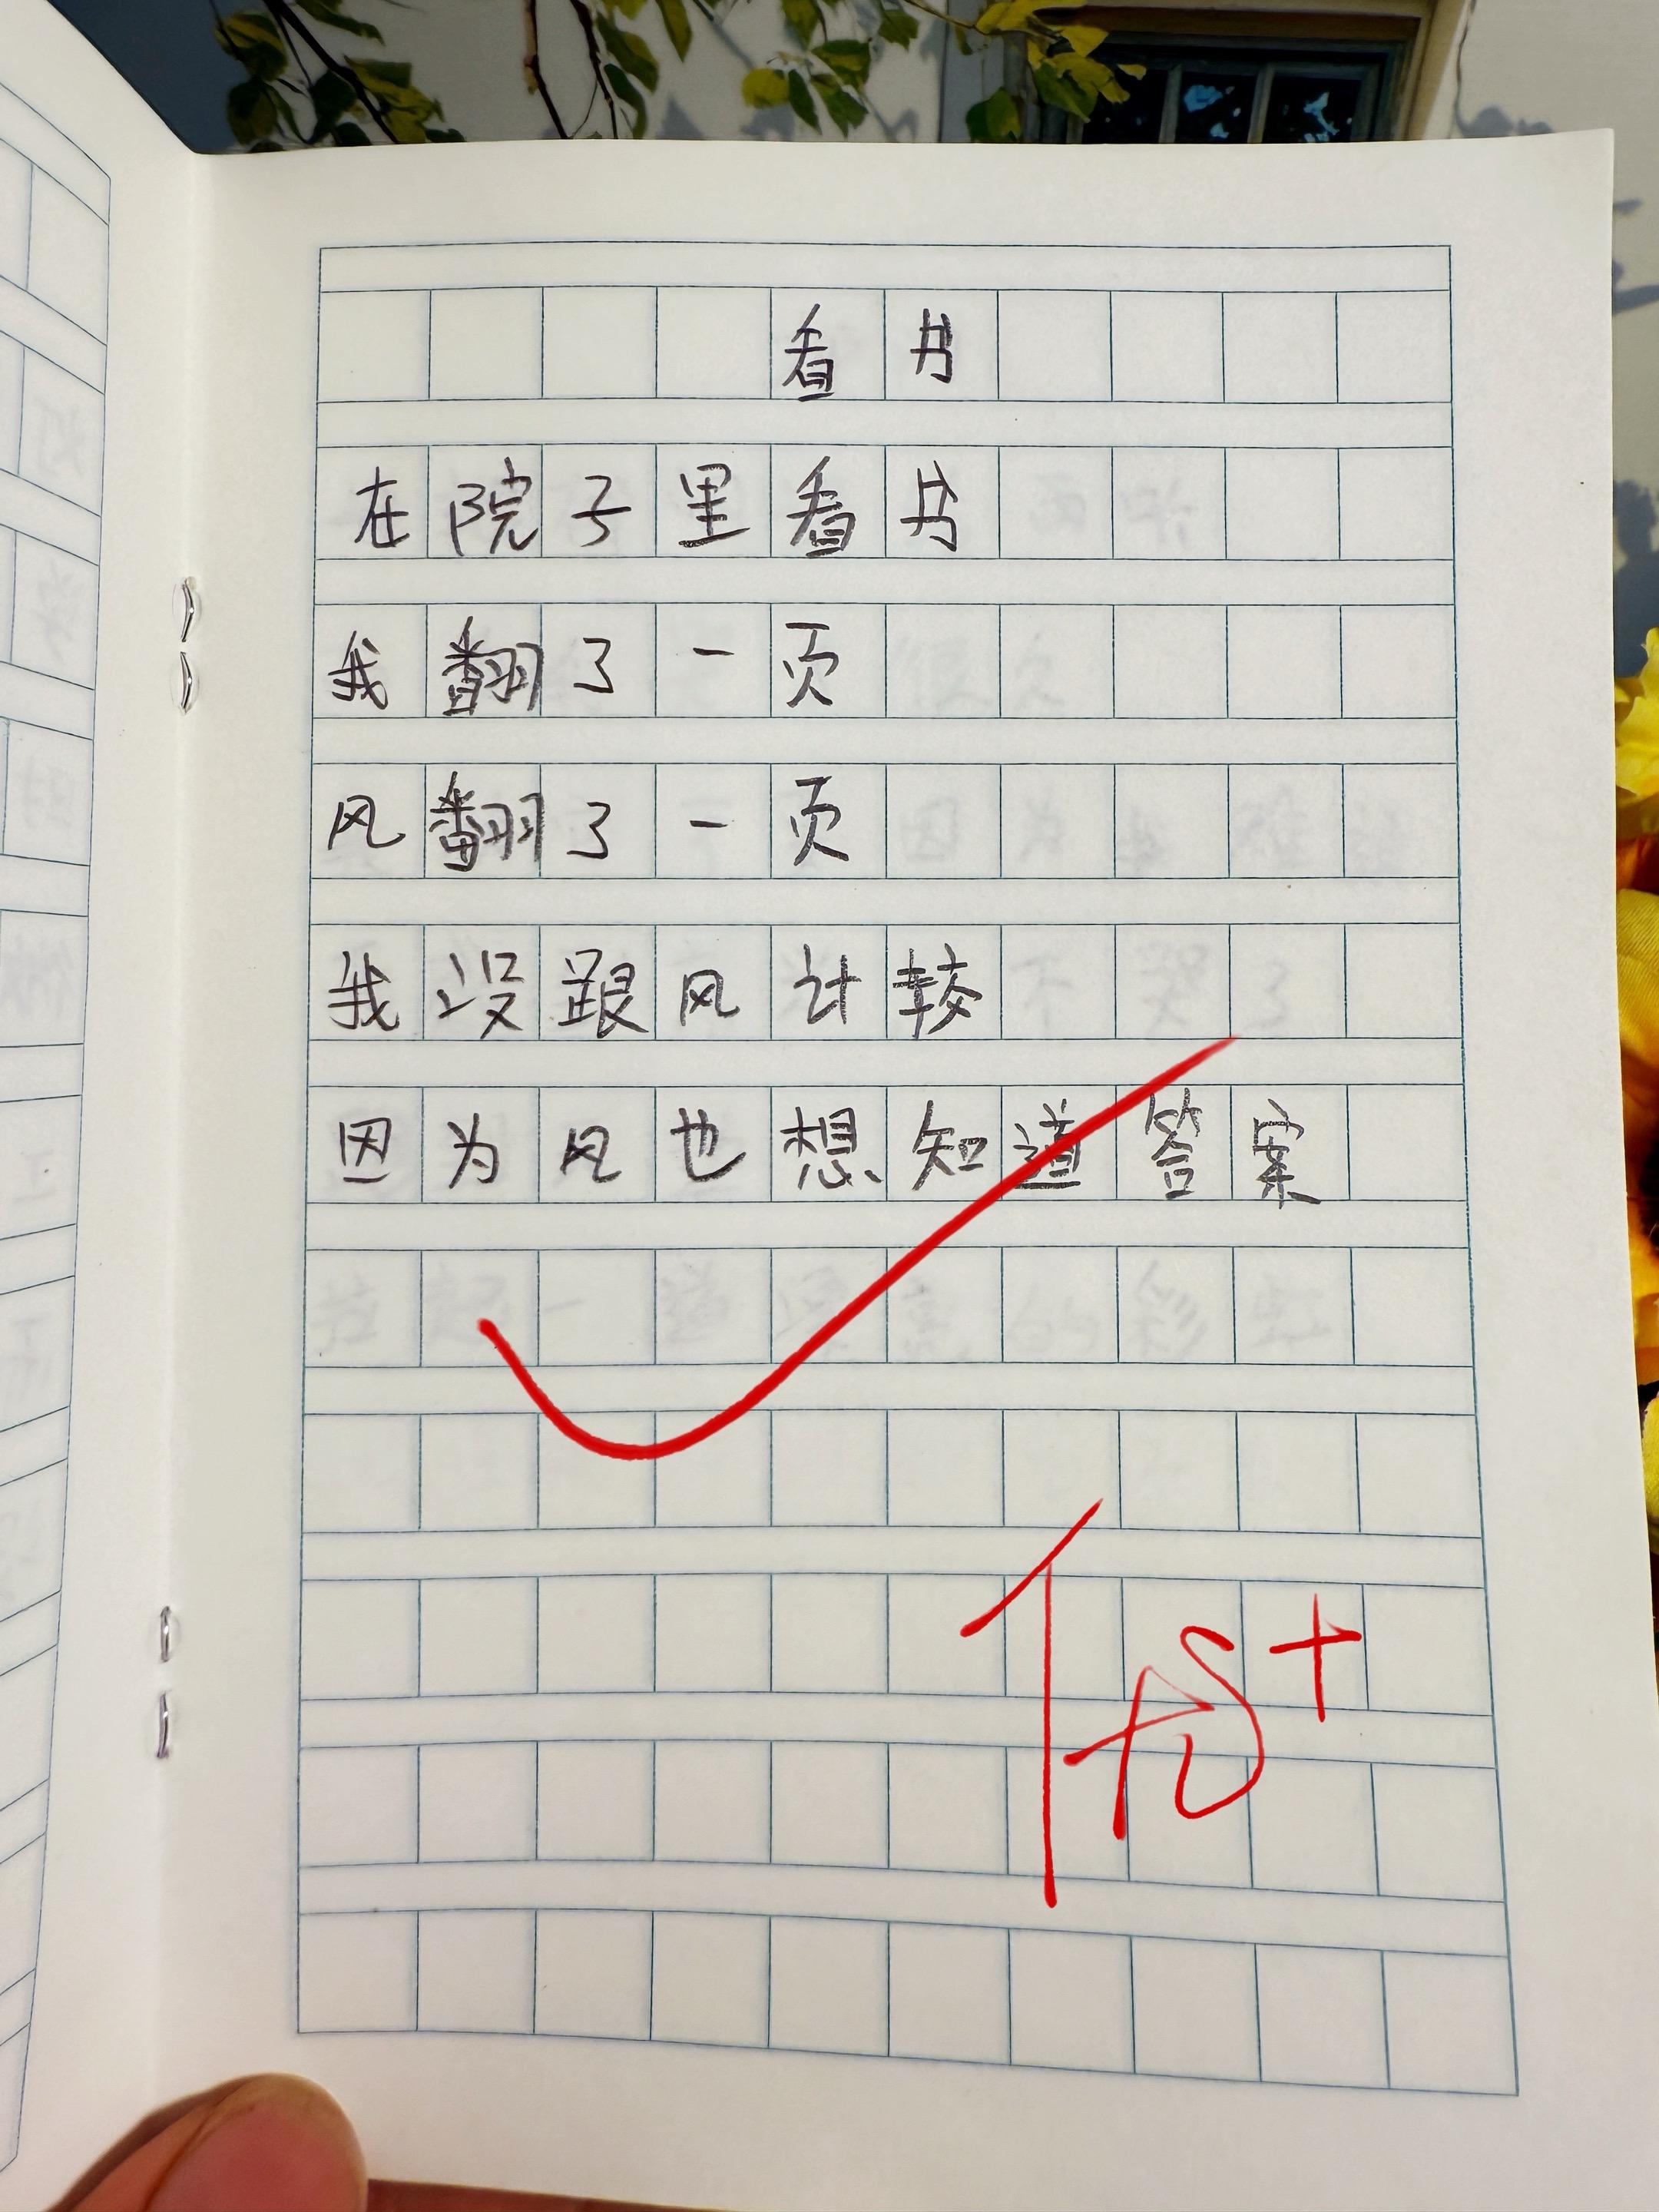 看书
在院子里看书
我翻了一页
风翻了一页
我没跟风计较
因为风也想知道答案
优+